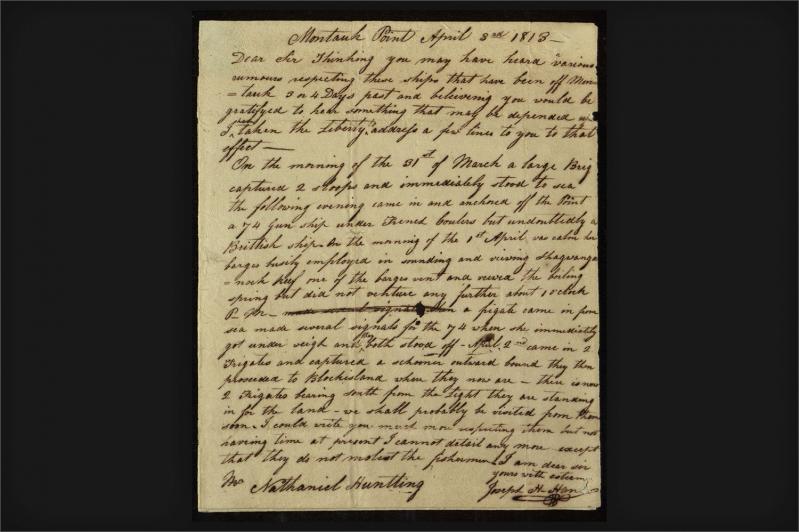 Montauk Point April 3rd 1813 —
Dear Sir Thinking you may have heard various
rumours respecting these ships that have been off Mon
=tauk 3 or 4 Days past and believing you would be
gratifyed to hear something that may be depended
I have taken the Liberty to address a few lines to you to that
effect —
On the morning of the 31st of March a large Brig
captured 2 sloops and immediately stood to sea
the following evening came in and anchored off the Point
a 74 Gun ship under French Coulers but undoubtedly a
Brittish ship — On the morning of the 1st April, was calm her
barges busily employed in sounding and viewing Shagwanga
=nock Reef one of the barges went and viewed the boiling
spring but did not venture any further about 1 oclock
P. M — made several signals then a frigate came in from
sea made several signals for the 74 when she immediately
got under weigh and they both stood off — April 2nd came in 2
Frigates and captured a schooner outward bound they then
proseeded to Blockisland where they now are — there is now
2 Frigates bearing south from the Light they are standing
in for the land — we shall probably be visited from them
soon — I could write you much more respecting them but not
having time at present I cannot detail any more except
that they do not molest the fishermen — I am dear sir
yours with esteem
Mr Nathaniel Huntting
Joseph H. Han